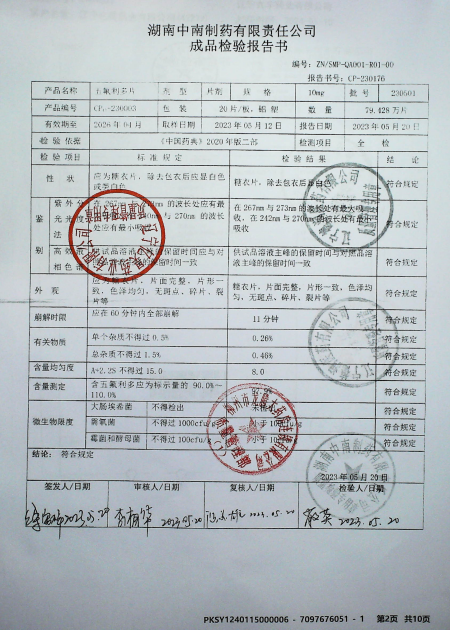 湖南中南制药有限责任公司
成品检验报告书
编号：ZN/SMP-QA001-R01-00
报告书号：CP-230176
产品名称 五氟利多片 剂型 片剂 规格 10mg 批号 230501
产品编号 包装 20片/板，铝塑 数量 79.428万片
有效期至 2026年04月 取样日期 2023年05月12日 报告日期 2023年05月20日
检验依据 《中国药典》2020年版二部 检测项目 全检
检验项目 标准规定 检验结果 结论
性状 应为糖衣片，除去包衣后应显白色或类白色 糖衣片，除去包衣后显白色 符合规定
鉴别 紫外分光光度法 的波长处应有最大 270nm 的波长处应有最小吸收 在267nm与273nm的波长处有最大吸收，在242nm与270nm的波长处有最小吸收 符合规定
高效液相色谱 供试品溶液主峰的保留时间应与对照品溶液主峰的保留时间一致 供试品溶液主峰的保留时间与对照品溶液主峰的保留时间一致 符合规定
外观 应为糖衣片，片面完整，片形一致，色泽均匀，无斑点、碎片、裂片等 糖衣片，片面完整，片形一致，色泽均匀，无斑点、碎片、裂片 符合规定
崩解时限 应在60分钟内全部崩解 11分钟 符合规定
有关物质 单个杂质不得过0.5% 0.26% 符合规定
总杂质不得过1.5% 0.46% 符合规定
含量均匀度 A+2.2S不得过15.0 8.0 符合规定
含量测定 含五氟利多应为标示量的90.0%～110.0% 符合规定
微生物限度 大肠埃希菌 不得检出 未检出 符合规定
需氧菌 不得过1000cfu/g 小于10cfu/g 符合规定
霉菌和酵母菌 不得过100cfu/g 小于10 符合规定
结论： 符合规定
2023年05月20日
签发人/日期 审核人/日期 复核人/日期 检验人/日期
2023.05.20 2023.05.20 2023.05.20
PKSY1240115000006 - 7097676051 - 1 第2页 共10页